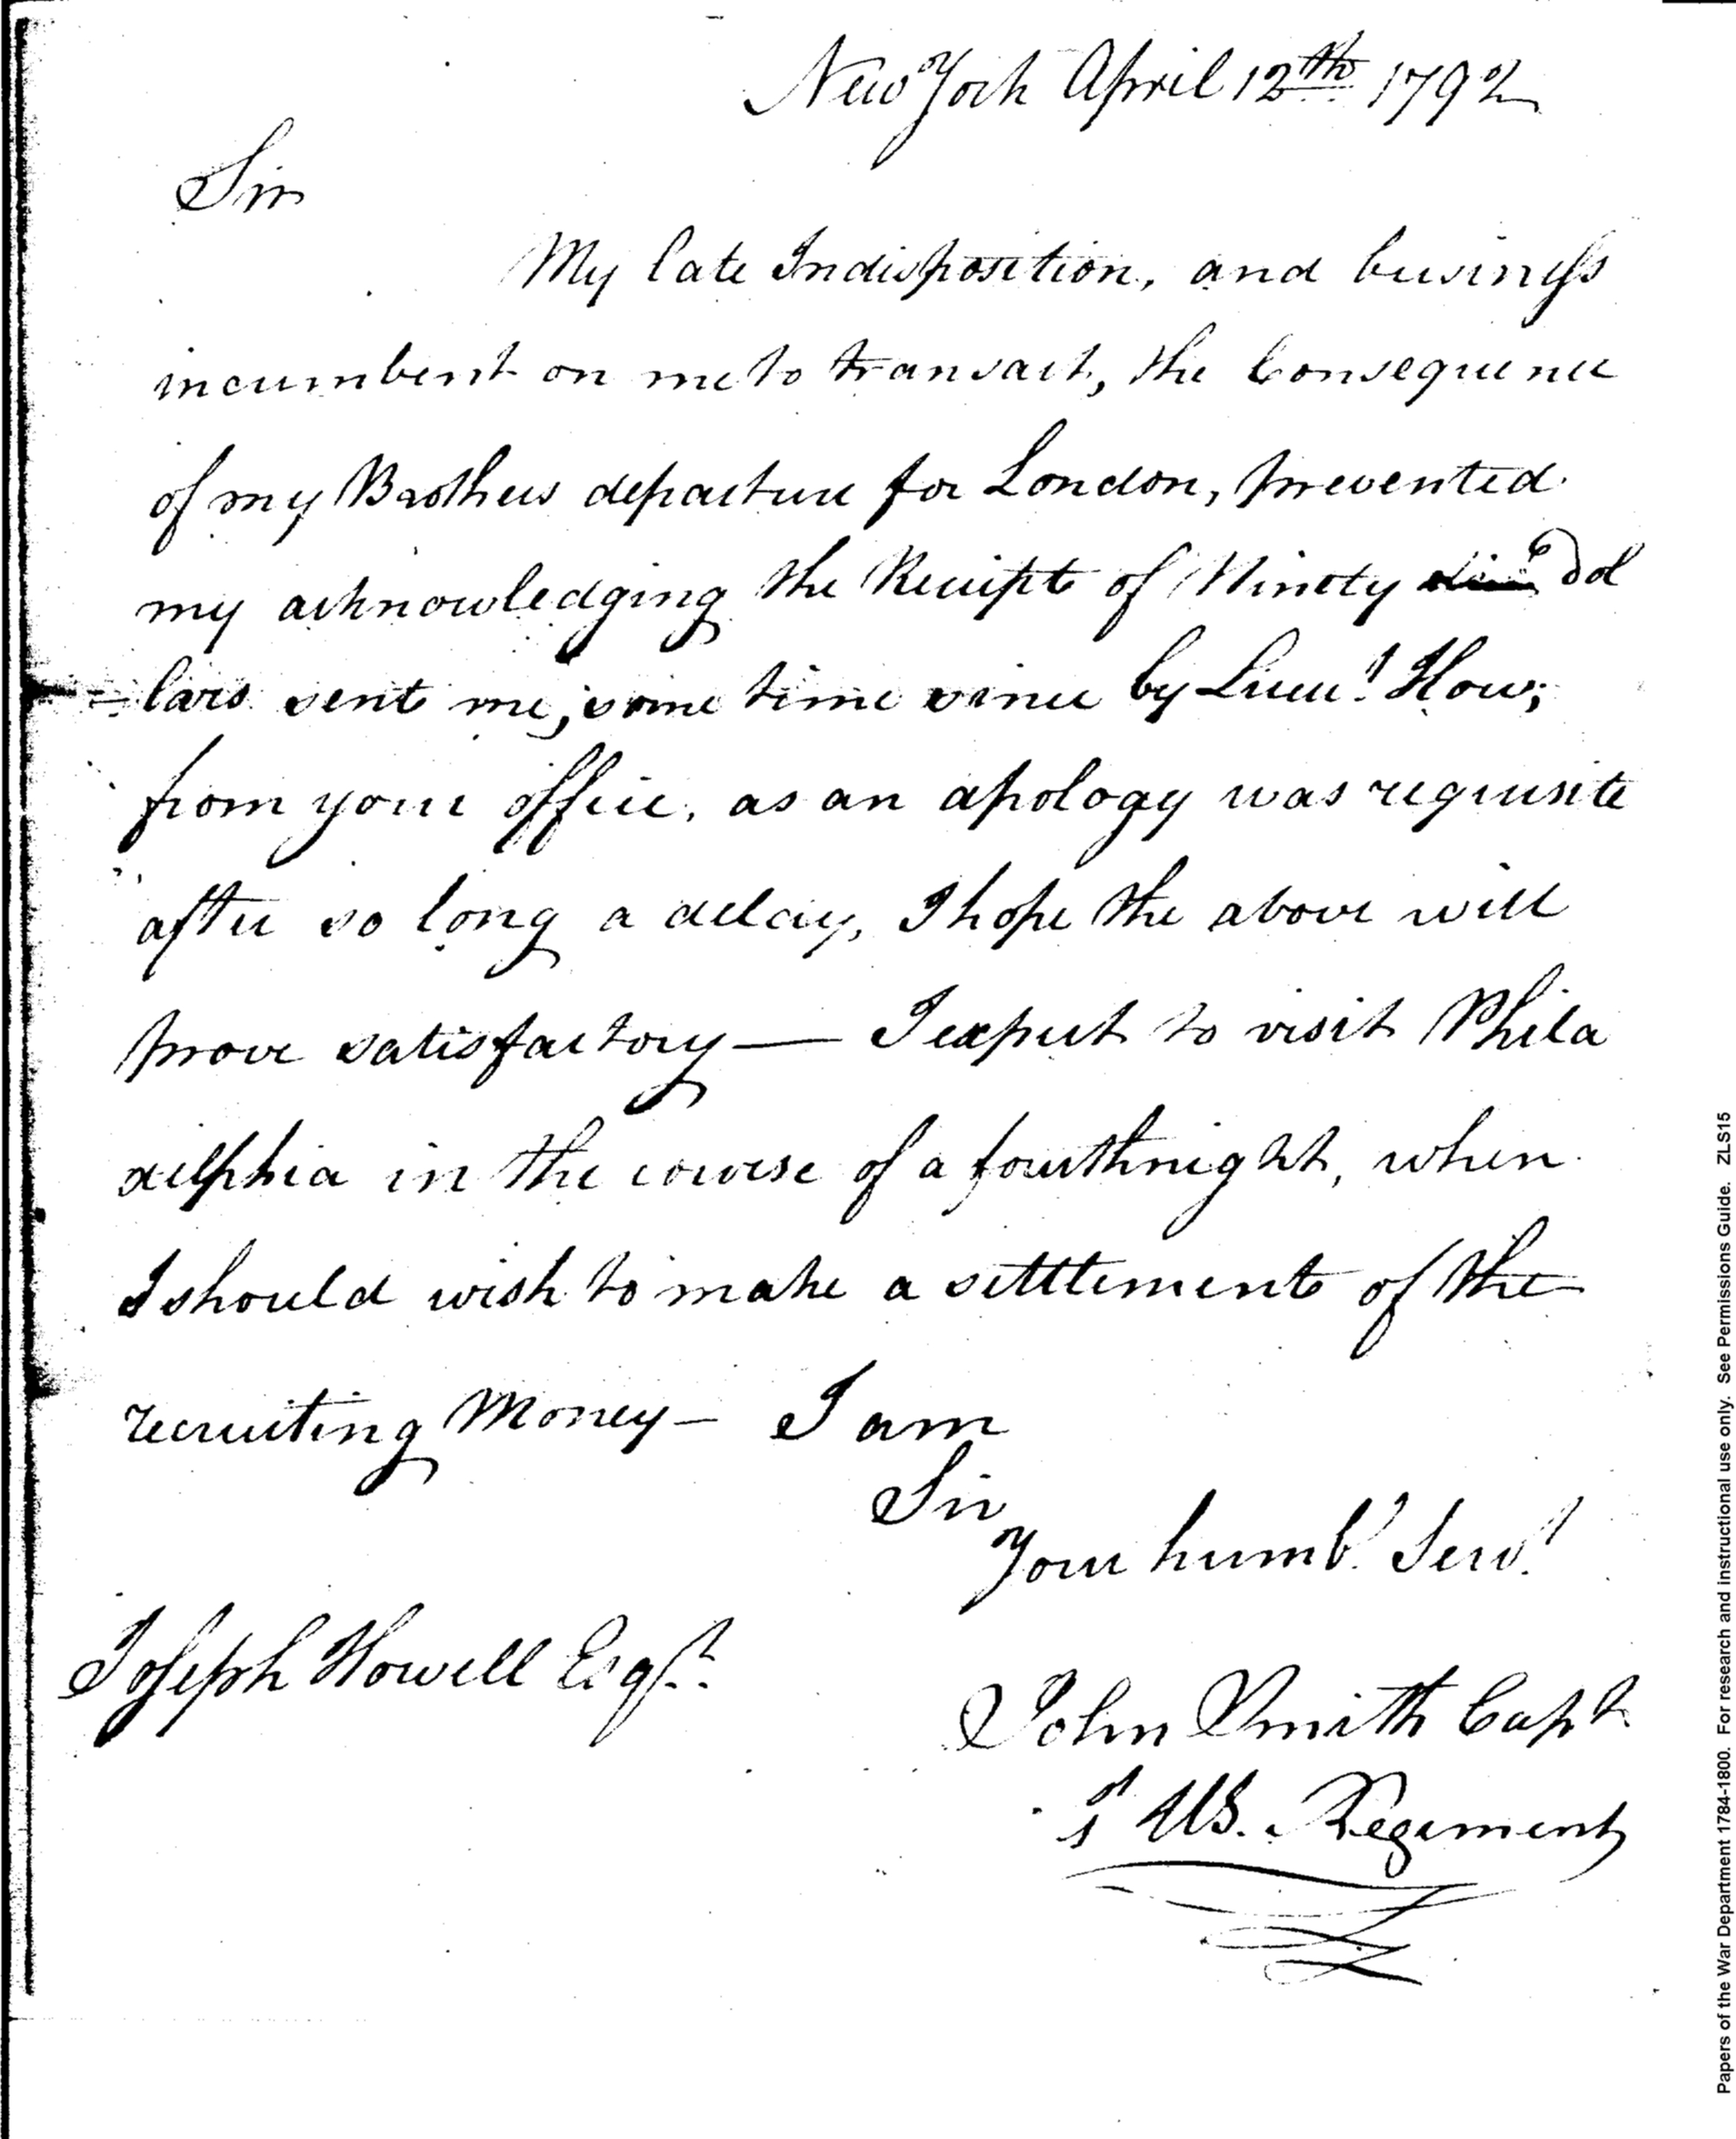 New York April 12th 1792
Sir
My late Indisposition, and business
incumbent on me to transact, the Consequence
of my Brothers departure for London, prevented
my acknowledging the Receipt of Ninety dol
lars sent me, some time since by Lieut. How;
from your office, as an apology was requisite
after so long a delay, I hope the above will
prove satisfactory — I expect to visit Phila
delphia in the course of a fourthnight, when
I should wish to make a settlement of the
recruiting Money — I am
Sir
Your humbl. Servt.
Joseph Howell Esqr.
John Smith Capt.
1st US. Regiment
Papers of the War Department 1784-1800. For research and instructional use only. See Permissions Guide. ZLS15